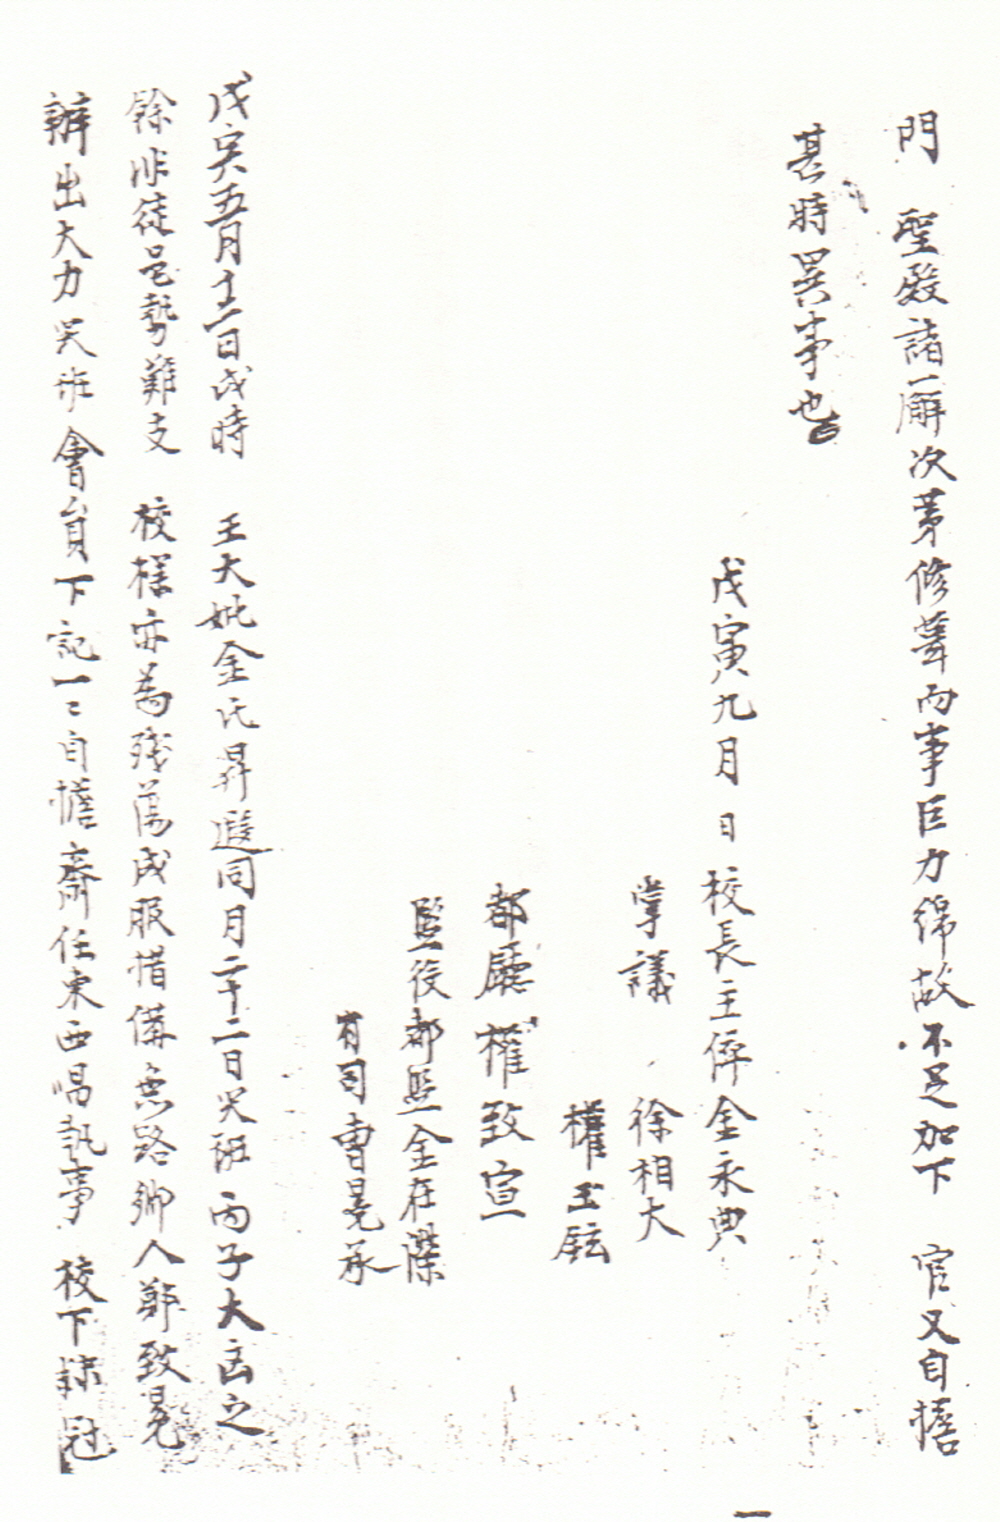 門 聖殿諸廨次第修葺而事巨力綿故不足加下 官又自擔
甚時異事也
戊寅九月 日 校長主倅金永典
掌議 徐相大
權玉鉉
都廳 權致宣
監役都監金在燦
有司曺晃承
戊寅五月十一日戌時 王大妣金氏昇遐同月二十二日哭班丙子大函之
餘非徒邑勢難支 校樣亦爲殘薄成服措備無路鄉人鄭致晃
辦出大力哭班會員下記一二自擔齋任東西唱執事 校下隷冠